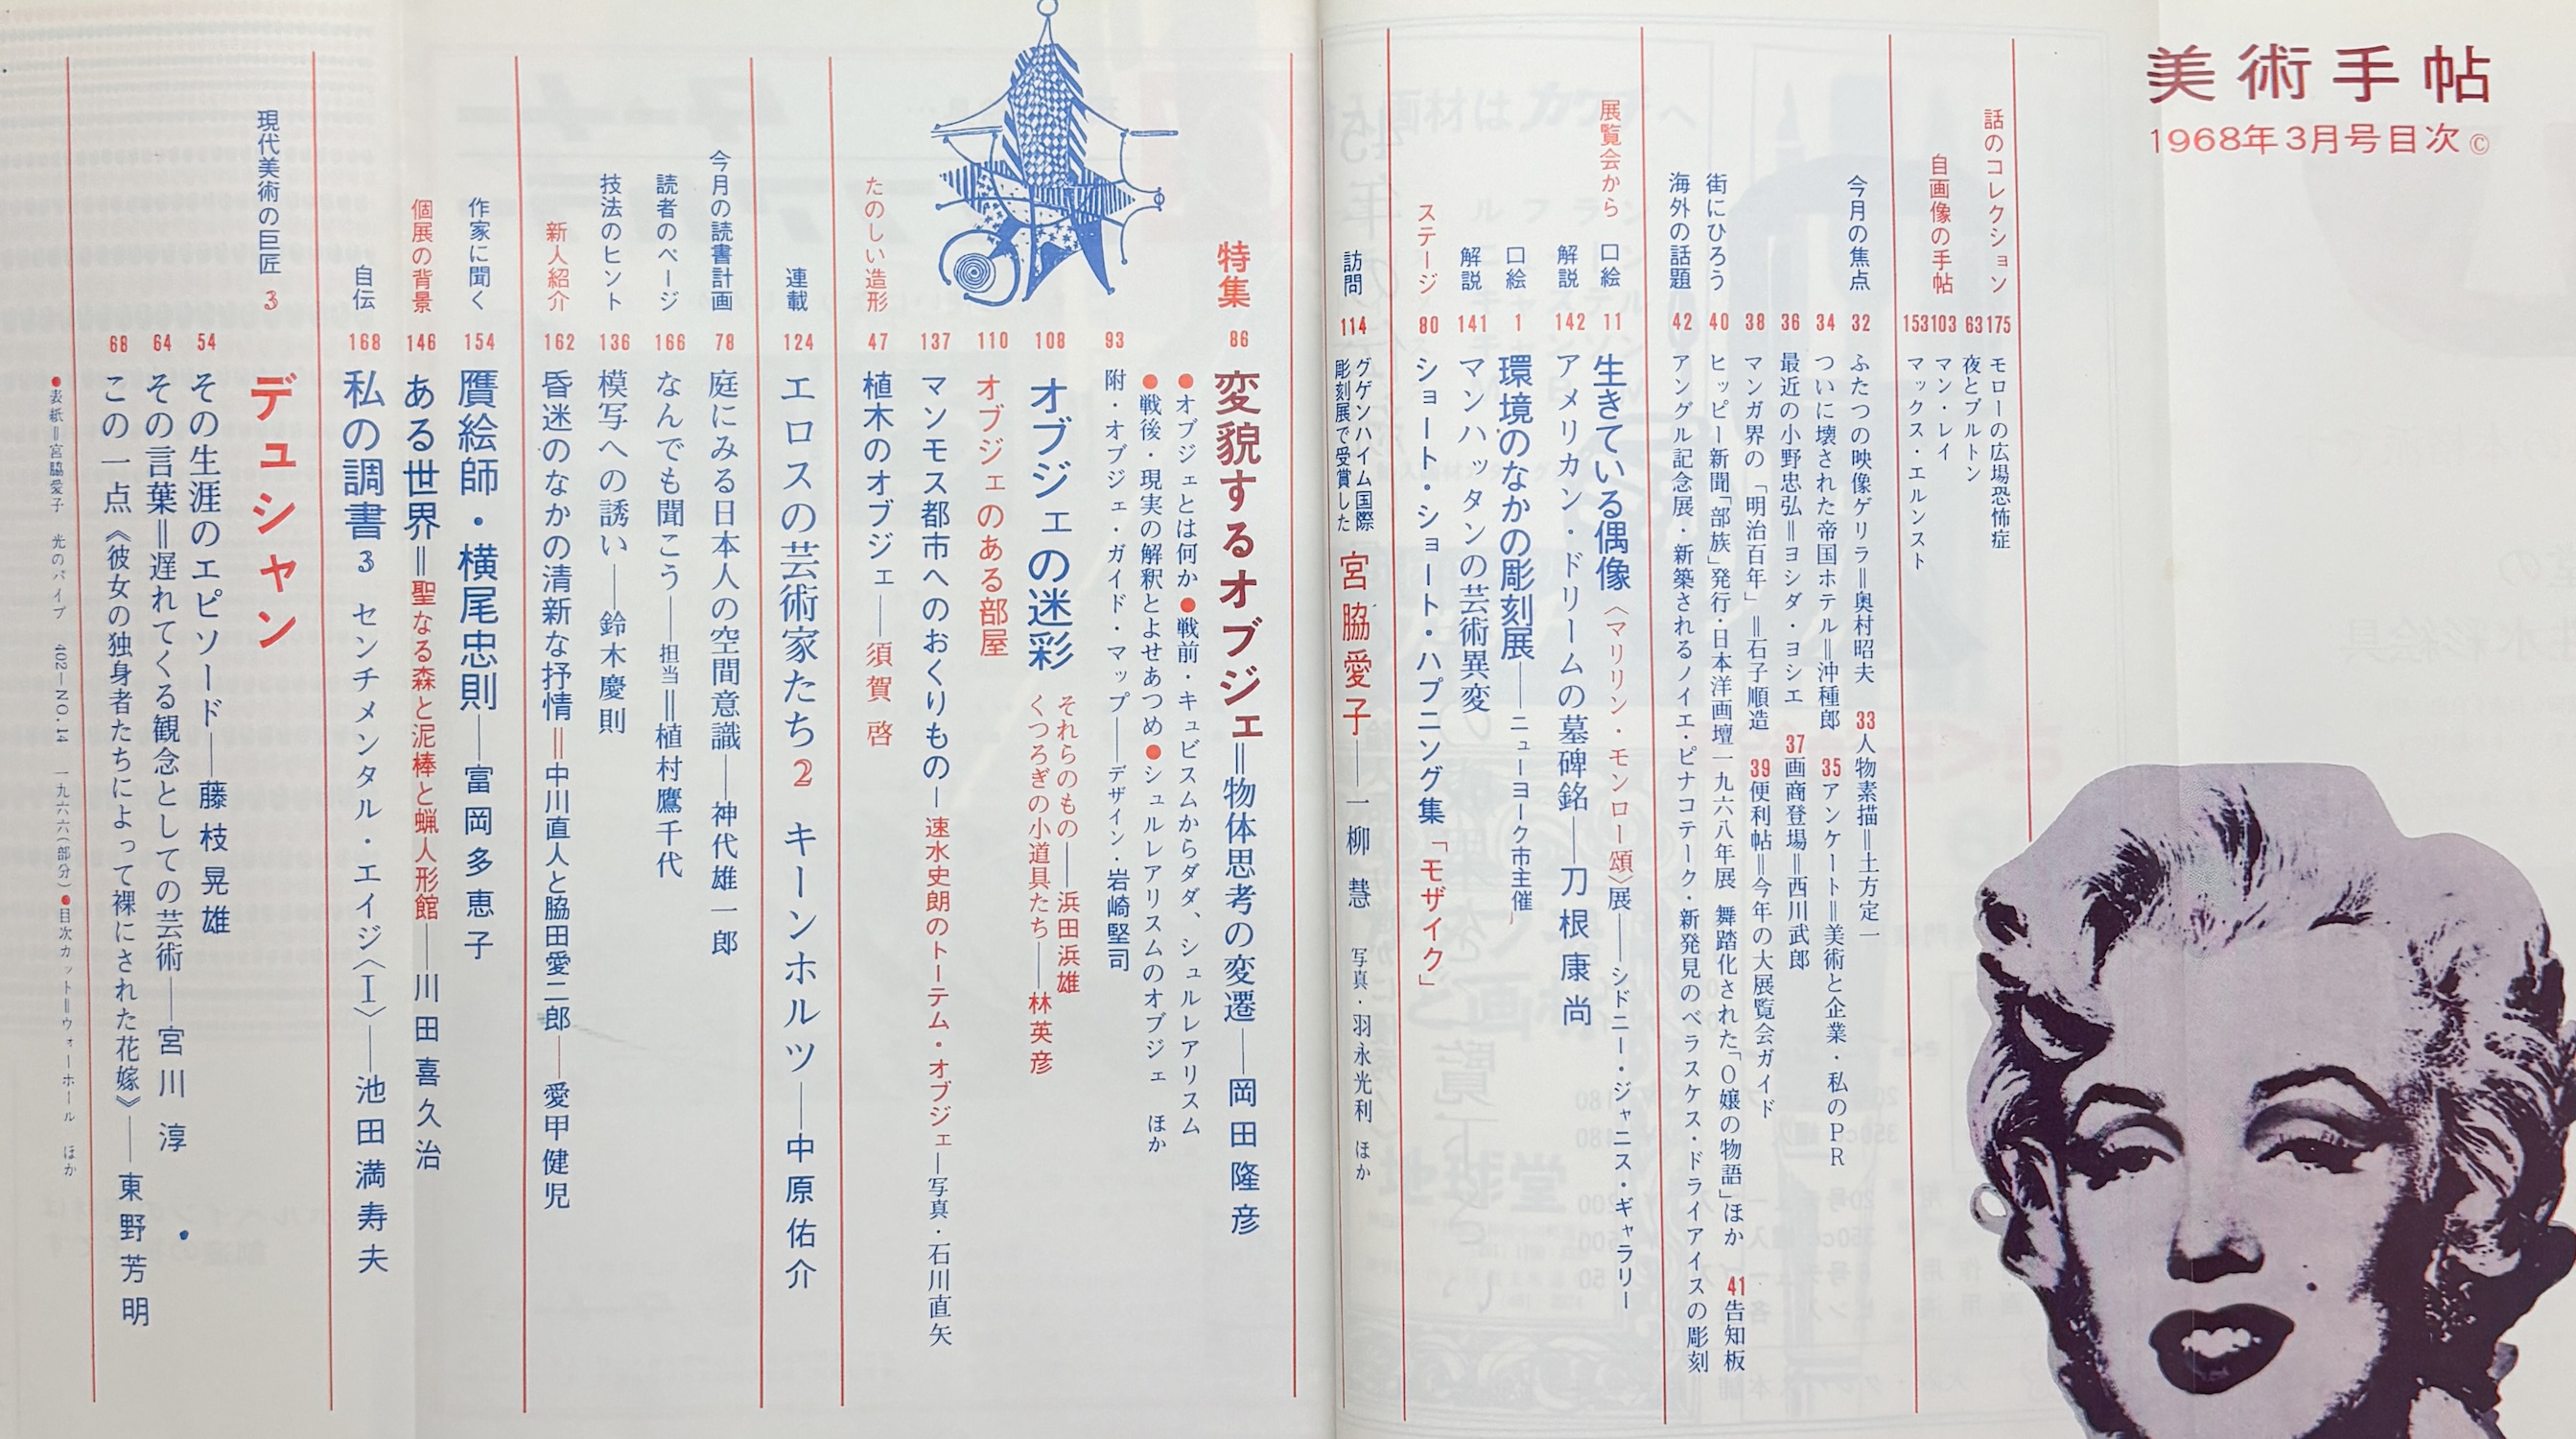 美術手帖
1968年3月号目次 ©
話のコレクション
175 モローの広場恐怖症
63 夜とブルトン
自画像の手帖
103 マン・レイ
153 マックス・エルンスト
今月の焦点
32 ふたつの映像ゲリラ＝奥村昭夫 33 人物素描＝土方定一
34 ついに壊された帝国ホテル＝沖種郎 35 アンケート＝美術と企業・私のPR
36 最近の小野忠弘＝ヨシダ・ヨシエ 37 画商登場＝西川武郎
38 マンガ界の「明治百年」＝石子順造 39 便利帖＝今年の大展覧会ガイド
街にひろう 40 ヒッピー新聞「部族」発行・日本洋画壇一九六八年展 舞踏化された「O嬢の物語」ほか 41 告知板
海外の話題 42 アングル記念展・新築されるノイエ・ピナコテーク・新発見のベラスケス・ドライアイスの彫刻
展覧会から 口絵 11 生きている偶像〈マリリン・モンロー頌〉展――シドニー・ジャニス・ギャラリー
解説 142 アメリカン・ドリームの墓碑銘――刀根康尚
口絵 1 環境のなかの彫刻展――ニューヨーク市主催
解説 141 マンハッタンの芸術異変
ステージ 80 ショート・ショート・ハプニング集「モザイク」
訪問 114 グゲンハイム国際
彫刻展で受賞した 宮脇愛子――一柳慧 写真・羽永光利 ほか
特集 86 変貌するオブジェ＝物体思考の変遷――岡田隆彦
●オブジェとは何か●戦前・キュビスムからダダ、シュルレアリスム
●戦後・現実の解釈とよせあつめ●シュルレアリスムのオブジェ ほか
93 附・オブジェ・ガイド・マップ――デザイン・岩崎堅司
108 オブジェの迷彩 それらのもの――浜田浜雄
くつろぎの小道具たち――林英彦
110 オブジェのある部屋
137 マンモス都市へのおくりもの―速水史朗のトーテム・オブジェ―写真・石川直矢
たのしい造形 47 植木のオブジェ――須賀啓
連載 124 エロスの芸術家たち2 キーンホルツ――中原佑介
今月の読書計画 78 庭にみる日本人の空間意識――神代雄一郎
読者のページ 166 なんでも聞こう――担当＝植村鷹千代
技法のヒント 136 模写への誘い――鈴木慶則
新人紹介 162 昏迷のなかの清新な抒情＝中川直人と脇田愛二郎――愛甲健児
作家に聞く 154 贋絵師・横尾忠則――富岡多恵子
個展の背景 146 ある世界＝聖なる森と泥棒と蝋人形館――川田喜久治
自伝 168 私の調書3 センチメンタル・エイジ〈I〉――池田満寿夫
現代美術の巨匠 3 デュシャン
54 その生涯のエピソード――藤枝晃雄
64 その言葉＝遅れてくる観念としての芸術――宮川淳
68 この一点《彼女の独身者たちによって裸にされた花嫁》――東野芳明
●表紙＝宮脇愛子 光のパイプ 402―NO.14 一九六六(部分)●目次カット＝ウォーホール ほか